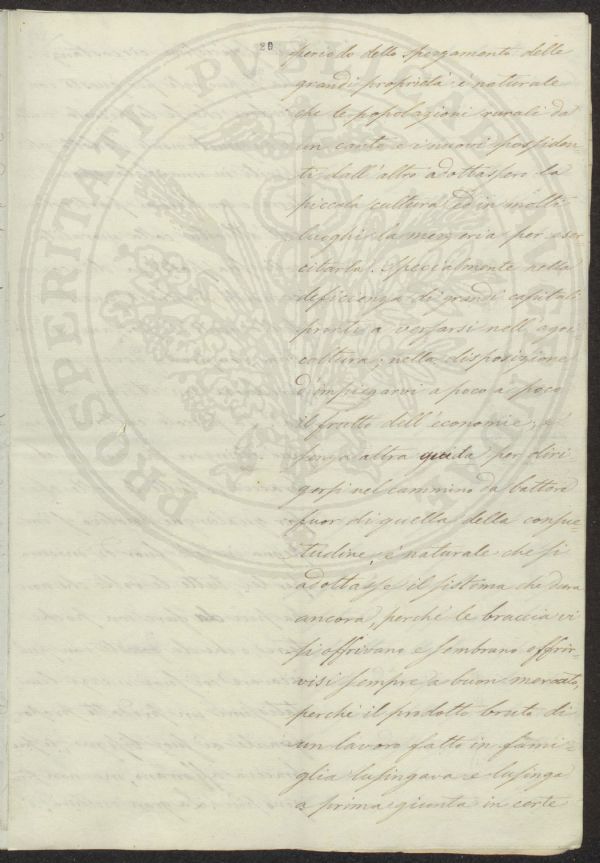 20
periodo dello spezzamento delle
grandi proprietà è naturale
che le popolazioni rurali da
un canto e i nuovi possiden-
ti dall'altro adottassero la
piccola cultura, ed in molti
luoghi la mezzeria per eser
citarla. Specialmente nella
deficienza di grandi capitali
pronti a versarsi nell'agri
coltura; nella disposizione
d'impiegarvi a poco a poco
il frutto dell'economie, e
senza altra guida per diri-
gersi nel cammino da battere
fuor di quella della consue-
tudine, è naturale che si
adottasse il sistema che dura
ancora, perchè le braccia vi
si offrivano e sembrano offrir-
visi sempre a buon mercato,
perchè il prodotto bruto di
un lavoro fatto in fami-
glia lusingava e lusinga
a prima giunta in certe
PROSPERITATI PVBLICAE